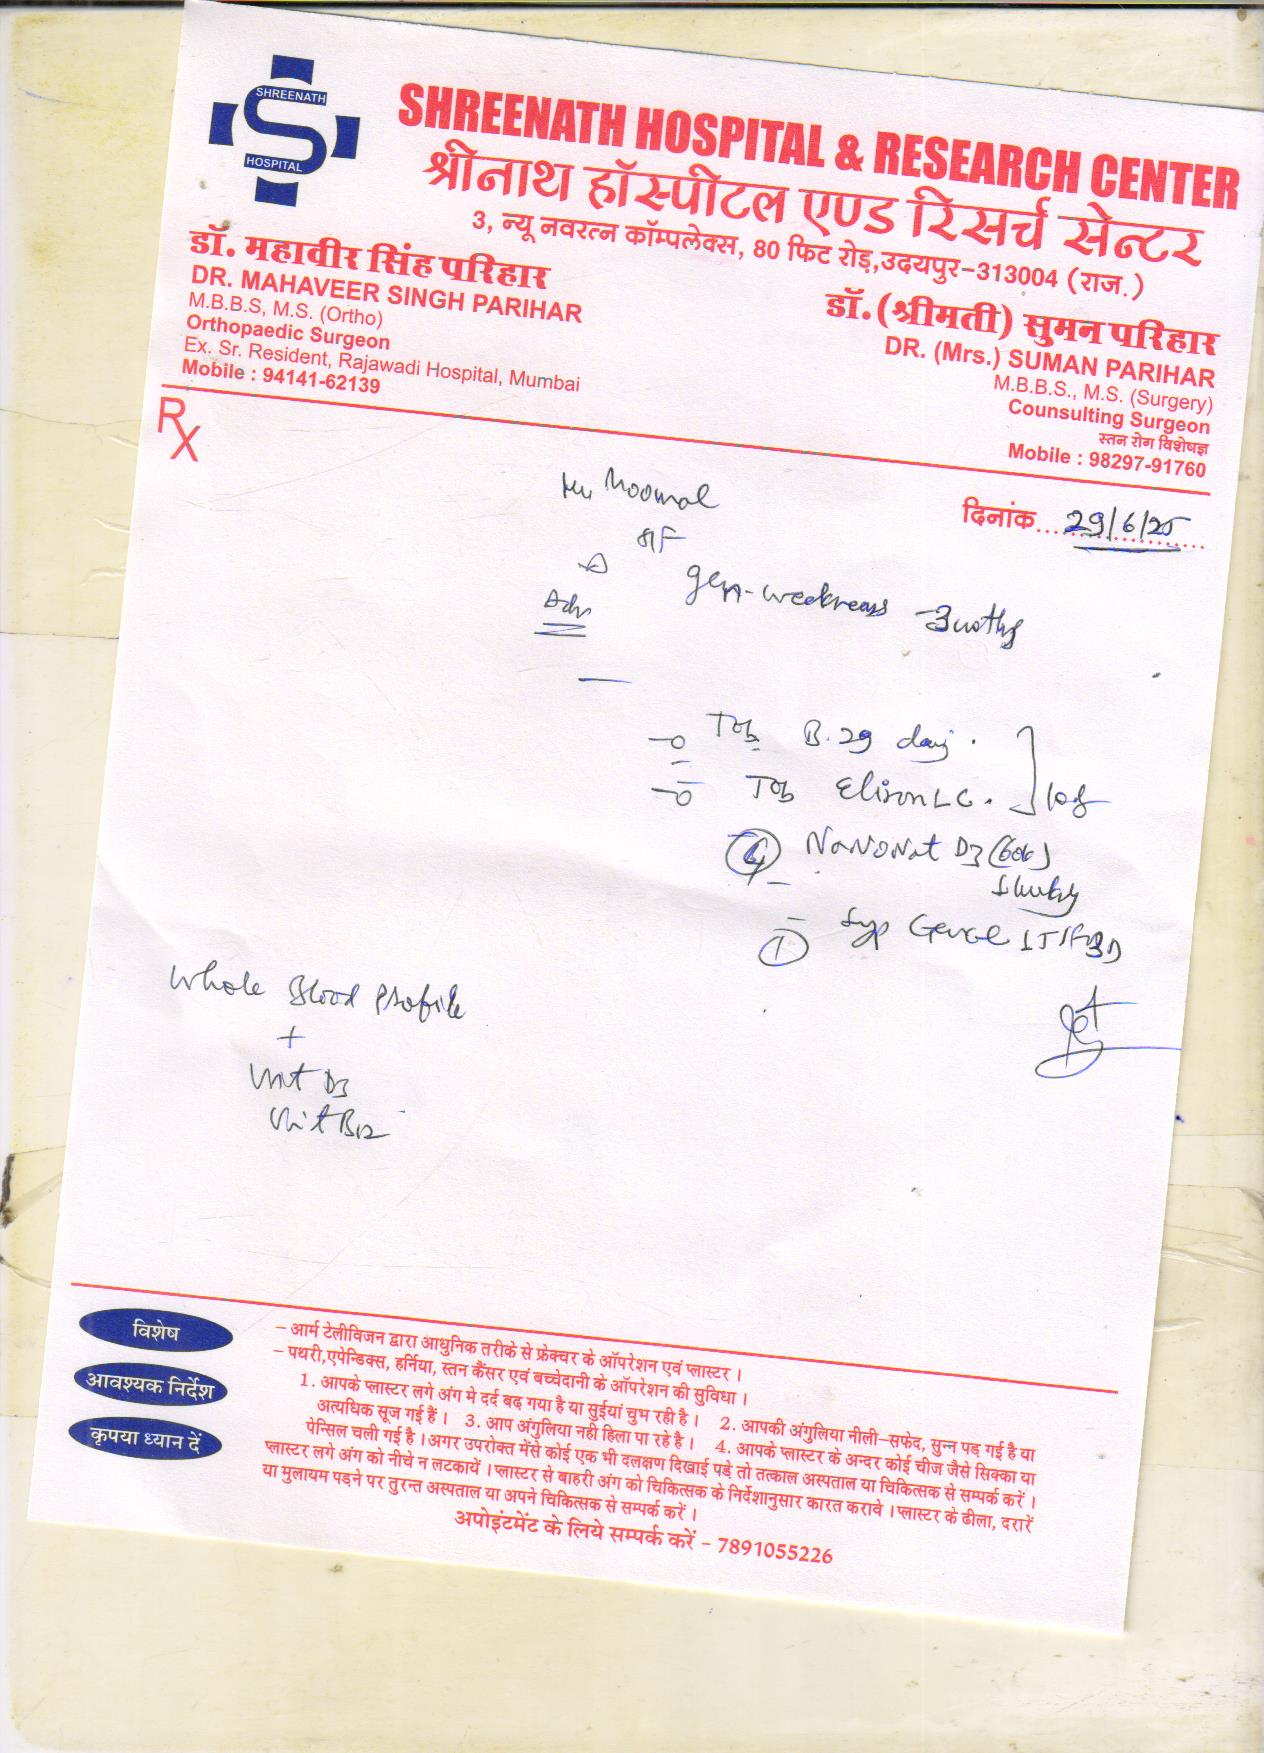 SHREENATH
HOSPITAL
SHREENATH HOSPITAL & RESEARCH CENTER
श्रीनाथ हॉस्पीटल एण्ड रिसर्च सेन्टर
3, न्यू नवरत्न कॉम्पलेक्स, 80 फिट रोड़,उदयपुर-313004 (राज.)
डॉ. महावीर सिंह परिहार
DR. MAHAVEER SINGH PARIHAR
M.B.B.S, M.S. (Ortho)
Orthopaedic Surgeon
Ex. Sr. Resident, Rajawadi Hospital, Mumbai
Mobile : 94141-62139
डॉ.(श्रीमती) सुमन परिहार
DR. (Mrs.) SUMAN PARIHAR
M.B.B.S., M.S. (Surgery)
Counsulting Surgeon
स्तन रोग विशेषज्ञ
Mobile : 98297-91760
Rx
दिनांक 29/6/25
Moomal
Adv
gen-weakness - 3 months
Tab B.29 day.
Tab Elison LC.
NANONat D3 (60k)
Syp
Whole Blood Profile
+
Vit D3
Vit B12
विशेष
- आर्म टेलीविजन द्वारा आधुनिक तरीके से फ्रेक्चर के ऑपरेशन एवं प्लास्टर ।
- पथरी,एपेन्डिक्स, हर्निया, स्तन कैंसर एवं बच्चेदानी के ऑपरेशन की सुविधा ।
आवश्यक निर्देश
1. आपके प्लास्टर लगे अंग मे दर्द बढ़ गया है या सुईयां चुभ रही है । 2. आपकी अंगुलिया नीली-सफेद, सुन्न पड़ गई है या
अत्यधिक सूज गई हैं । 3. आप अंगुलिया नही हिला पा रहे है । 4. आपके प्लास्टर के अन्दर कोई चीज जैसे सिक्का या
कृपया ध्यान दें
पेन्सिल चली गई है । अगर उपरोक्त मेंसे कोई एक भी दलक्षण दिखाई पड़े तो तत्काल अस्पताल या चिकित्सक से सम्पर्क करें ।
प्लास्टर लगे अंग को नीचे न लटकायें । प्लास्टर से बाहरी अंग को चिकित्सक के निर्देशानुसार कारत करावे । प्लास्टर के ढीला, दरारें
या मुलायम पड़ने पर तुरन्त अस्पताल या अपने चिकित्सक से सम्पर्क करें ।
अपोइंटमेंट के लिये सम्पर्क करें - 7891055226